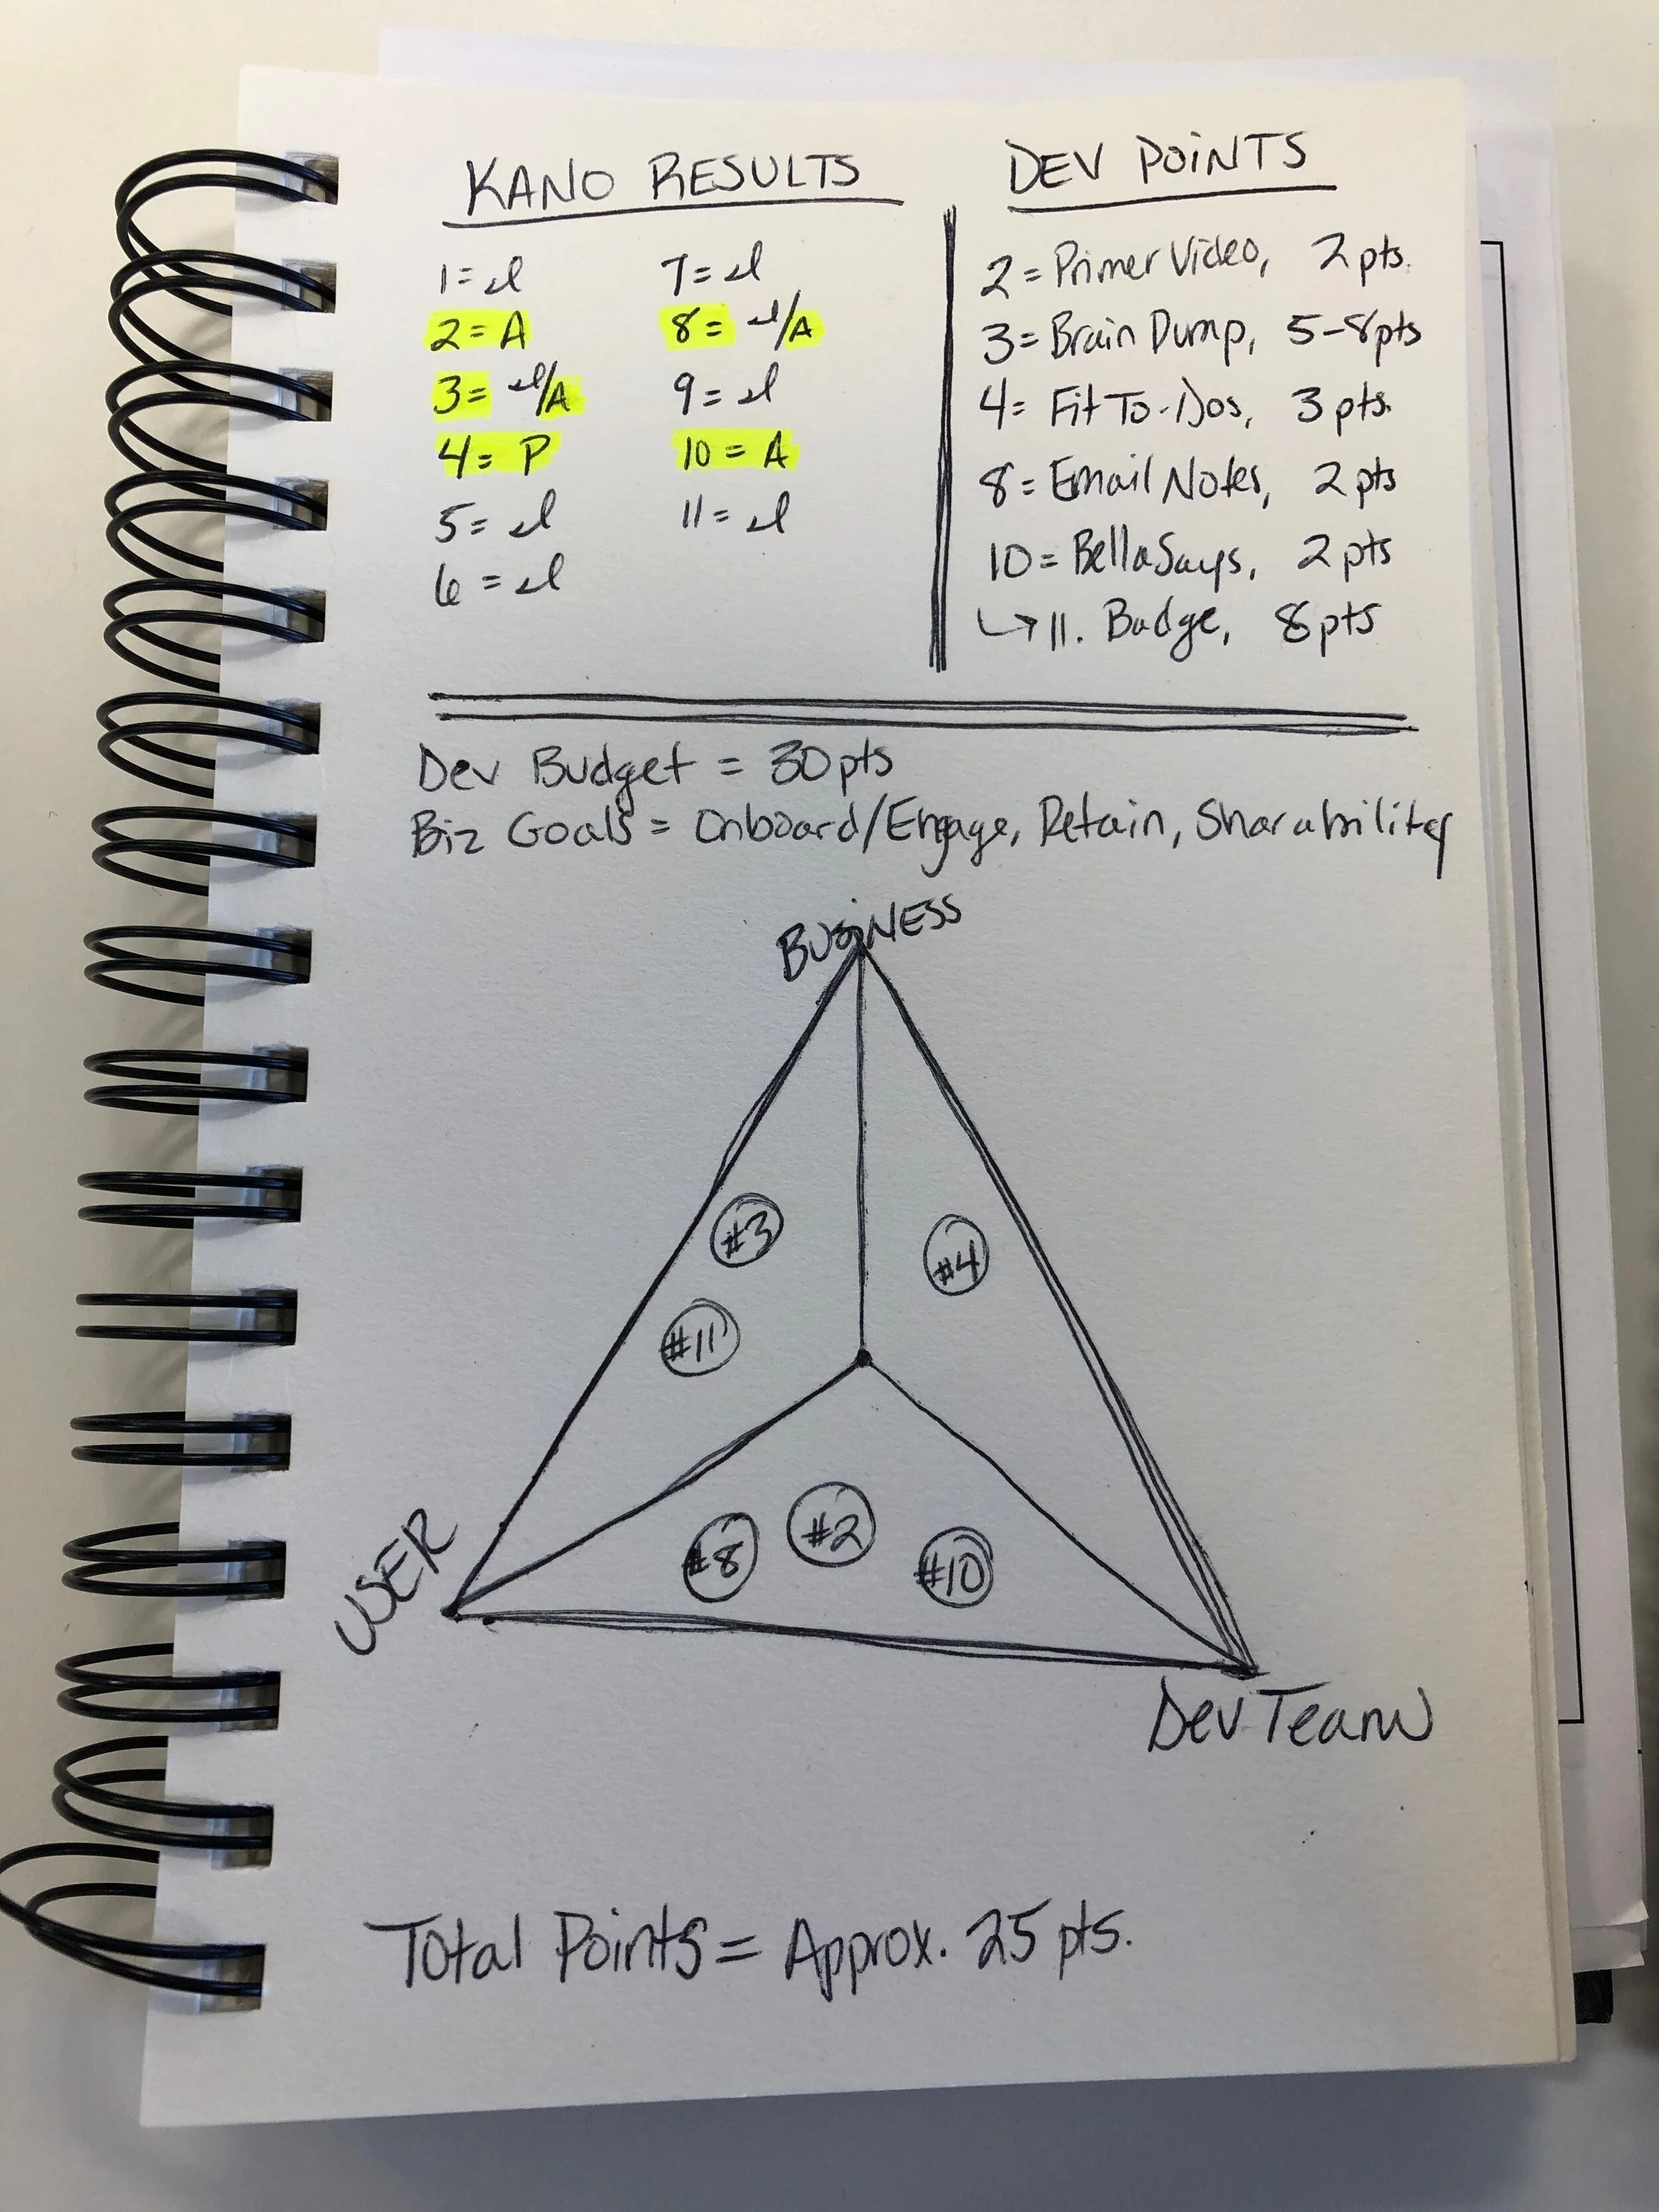 KANO RESULTS
1= I
2= A
3= I/A
4= P
5= I
6= I
7= I
8= I/A
9= I
10= A
11= I
DEV POINTS
2= Primer Video, 2 pts.
3= Brain Dump, 5-8pts
4= Fit To-Dos, 3 pts.
8= Email Notes, 2 pts
10= BellaSays, 2 pts
↳ 11. Badge, 8 pts
Dev Budget = 30 pts
Biz Goals = Onboard/Engage, Retain, Sharability
BUSINESS
#3
#4
#11
#8
#2
#10
USER
Dev Team
Total Points = Approx. 25 pts.